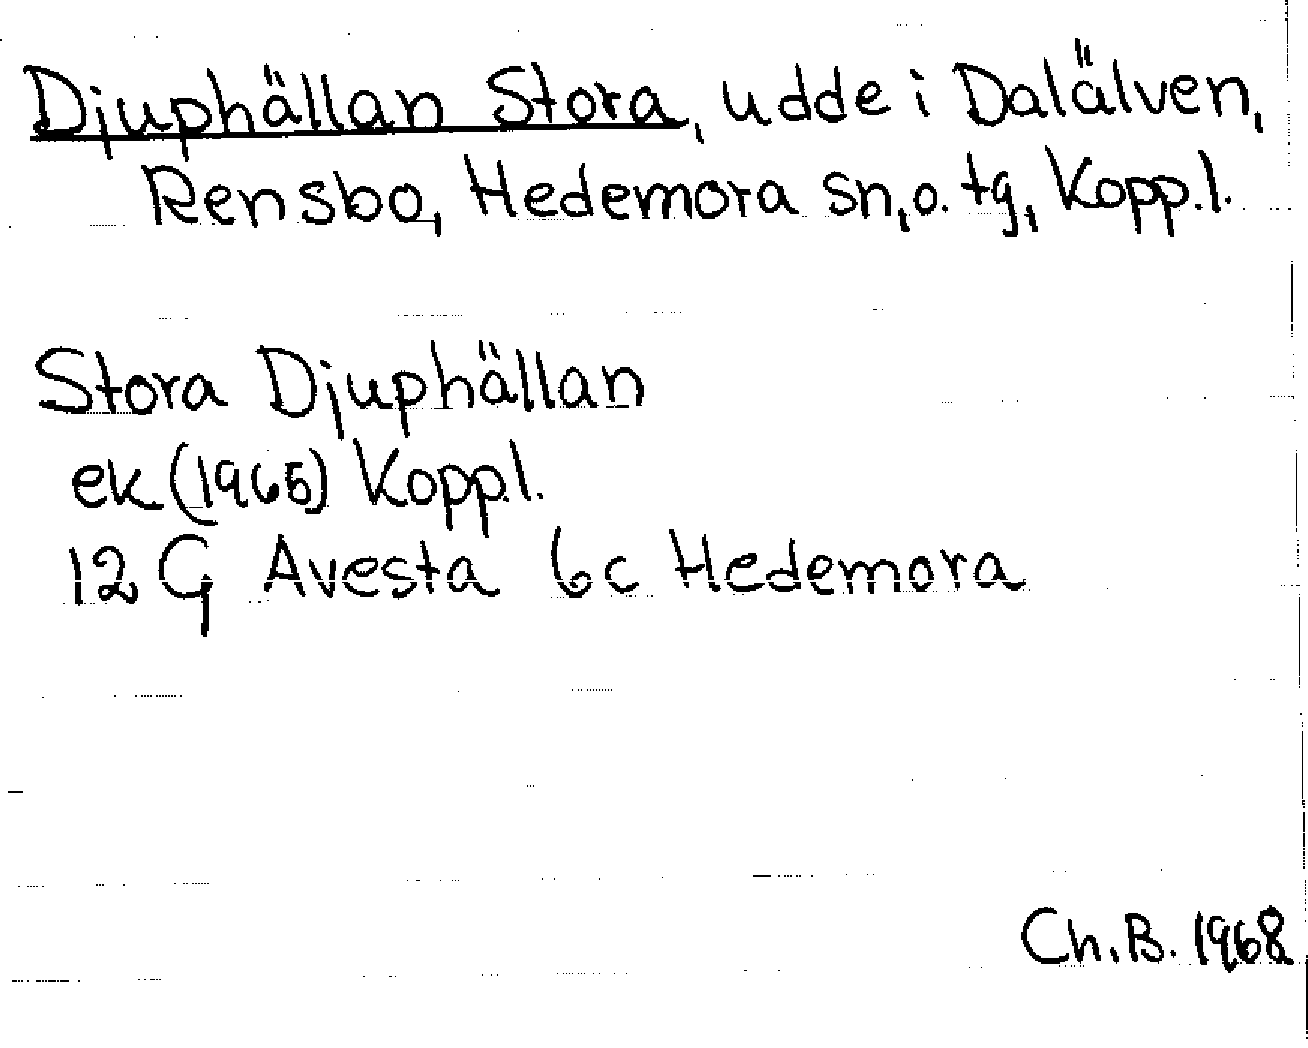 Djuphällan Stora, udde i Dalälven,
Rensbo, Hedemora sn, o. tg, Kopp.l.
Stora Djuphällan
ek (1965) Koppl.
12 G Avesta 6c Hedemora
Ch.B. 1968